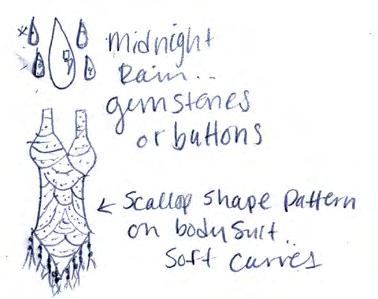 midnight
Rain..
gemstones
or buttons
← Scallop Shape Pattern
on bodysuit..
Soft curves